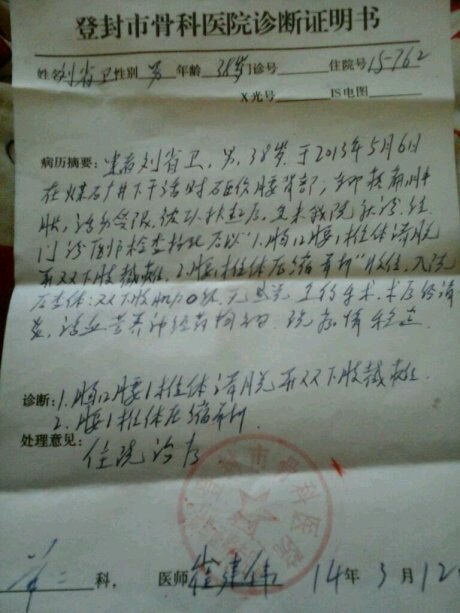 登封市骨科医院诊断证明书
姓名刘省卫性别 男 年龄 38岁门诊号 住院号15-762
X光号 IS电图
病历摘要：患者刘省卫，男，38岁，于2013年5月6日
在煤矿井下干活时砸伤腰背部，
活动受限，来我院就诊，经
门诊医师检查拍片后以"1.胸12腰1椎体滑脱
并双下肢截瘫 2.腰1椎体压缩骨折"收住，入院
后查体：双下肢肌力0级，手术，术后给消
炎，活血营养神经药物，现病情稳定
诊断：1.胸12腰1椎体滑脱并双下肢截瘫
2.腰1椎体压缩骨折
处理意见：
住院治疗
登封市骨科医院
科， 医师 14年3月12